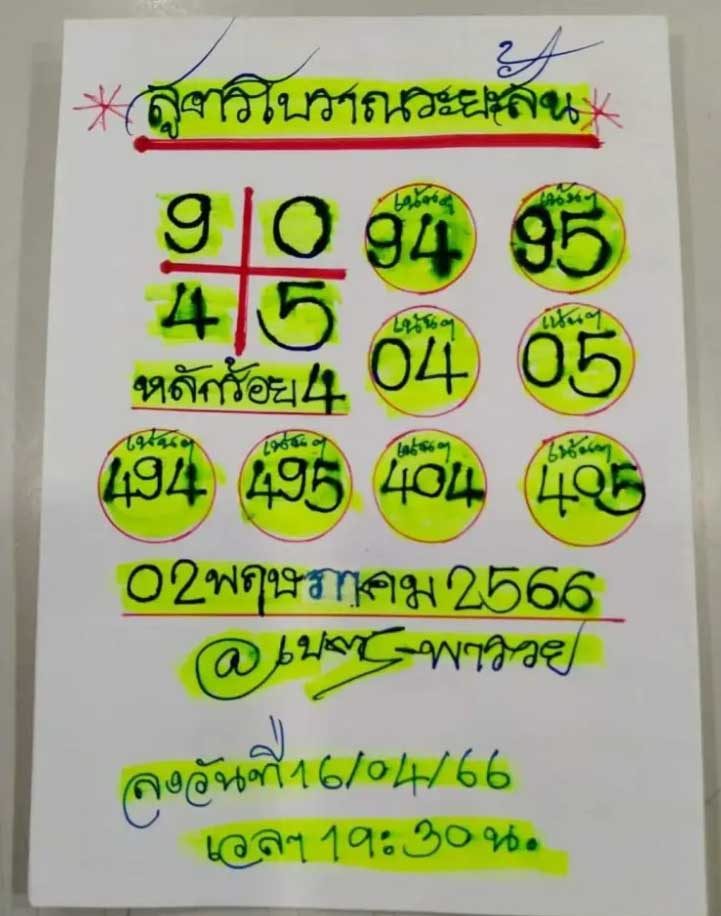 สูตรโบราณระยะสั้น
9 0 เน้นๆ 94 เน้นๆ 95
4 5 เน้นๆ 04 เน้นๆ 05
หลักร้อย 4
เน้นๆ 494 เน้นๆ 495 เน้นๆ 404 เน้นๆ 405
02 พฤษภาคม 2566
พารวย
ลงวันที่ 16/04/66
เวลา 19:30 น.